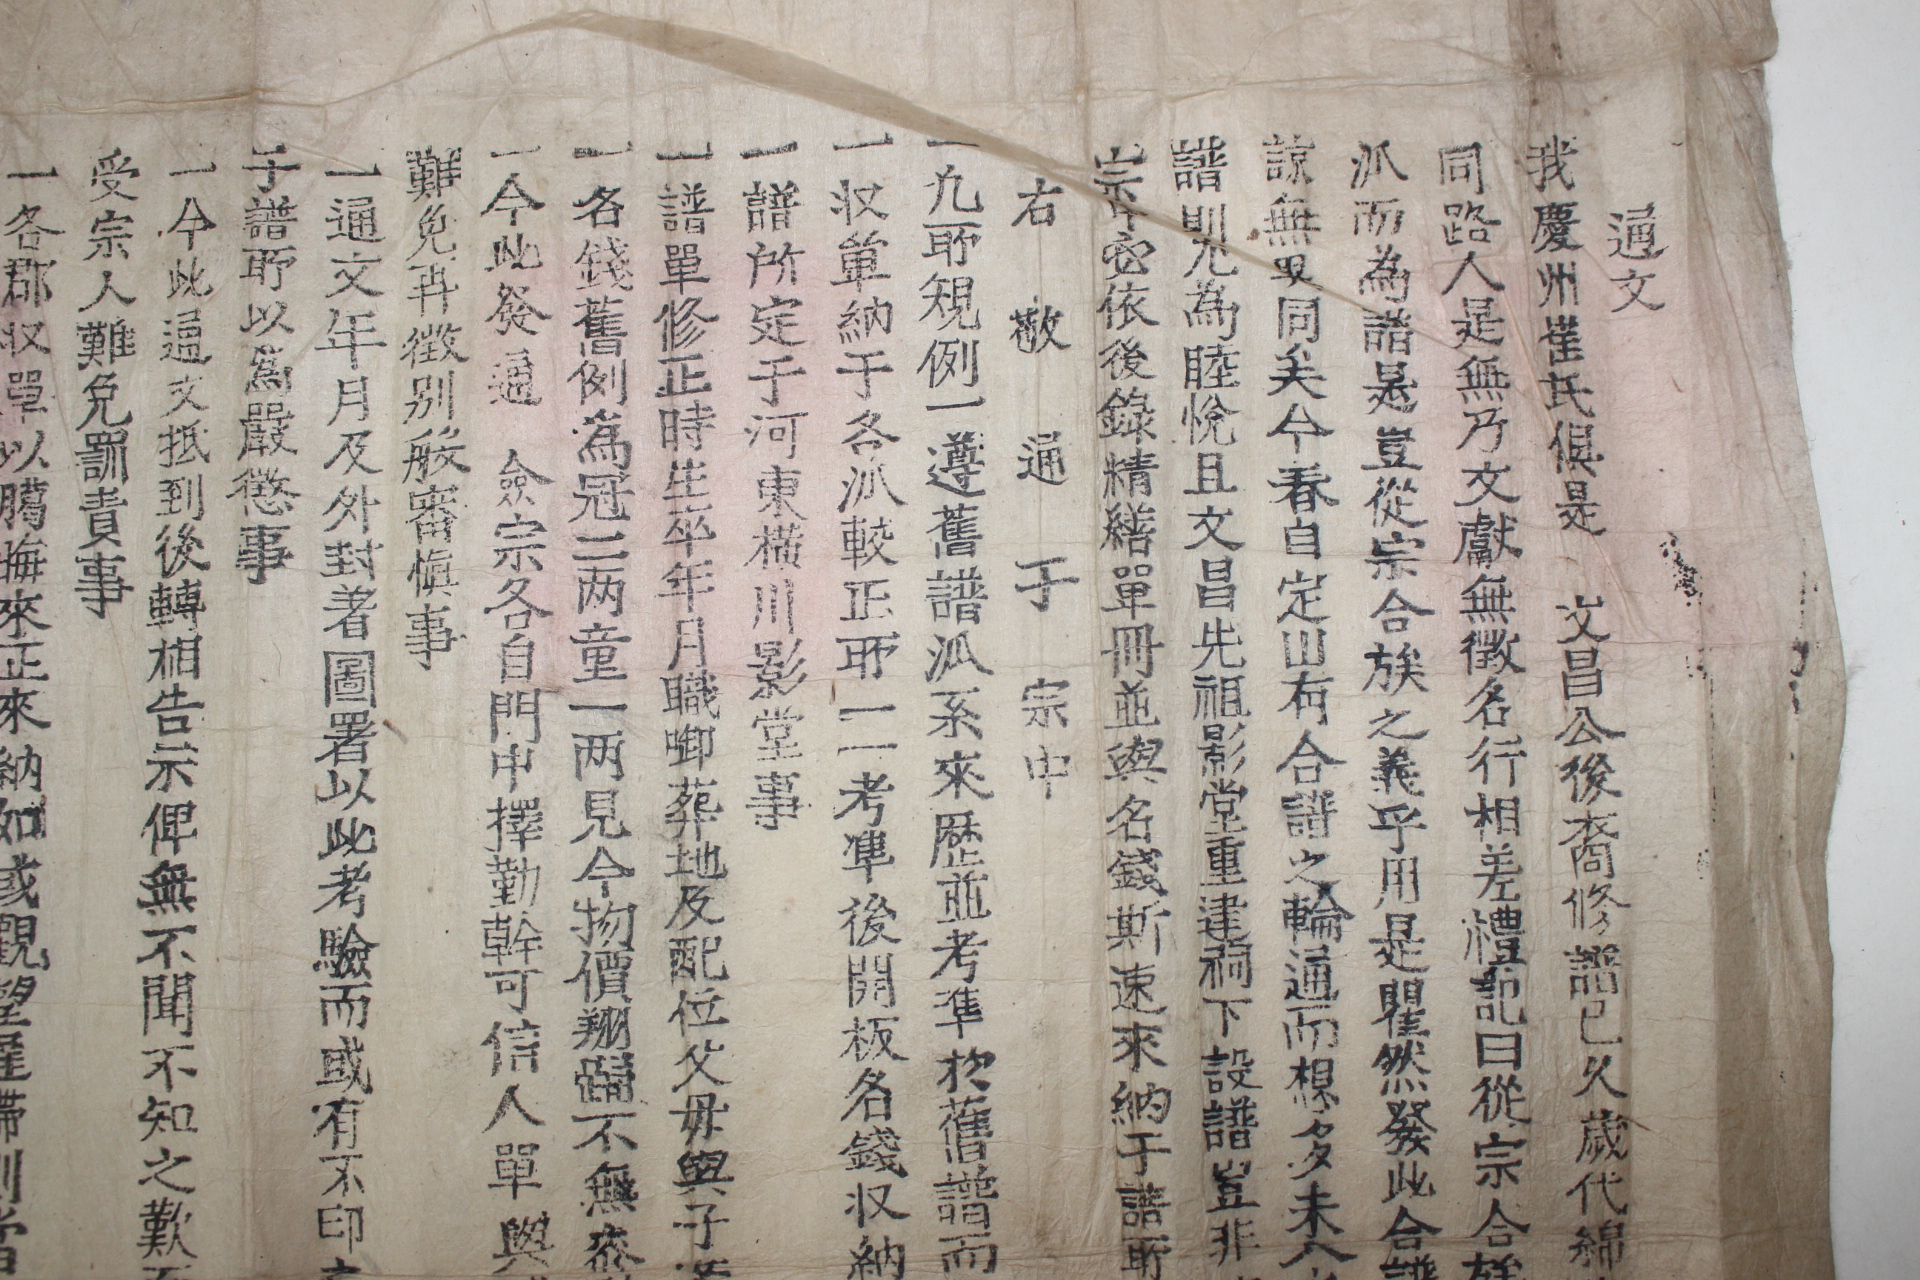 通文
我慶州崔氏俱是 文昌公後裔修譜已久歲代綿
同路人是無乃文獻無徵名行相差禮記曰從宗合族
派而為譜是豈從宗合族之義乎用是瞿然發此合譜
諒無異同矣今春自定山有合譜之輪通而想多未入
譜則尤為睦悅且文昌先祖影堂重建祠下設譜豈非
宗中安依後錄精繕單冊並與名錢斯速來納于譜所
右敬通于宗中
一凡所規例一遵舊譜派系來歷並考準於舊譜而
一収單納于各派較正所一一考準後開板名錢収納
一譜所定于河東橫川影堂事
一譜單修正時生卒年月職啣葬地及配位父母與子
一名錢舊例為冠二两童一两見今物價翔踴不無
一今此發通 僉宗各自門中擇勤幹可信人單與
難免再徵別般審愼事
一通文年月及外封着圖署以此考驗而或有不印
于譜所以為嚴懲事
一今此通文抵到後轉相告示俾無不聞不知之歎
受宗人難免罰責事
一各郡収單以臈晦來正來納如或觀望遲滯則當